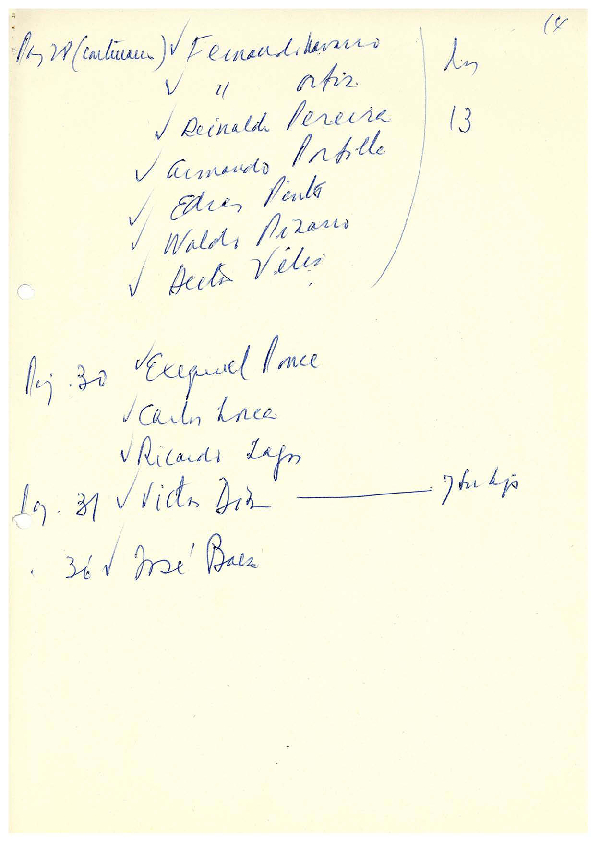 Pag 28 (continuac) ✓ Fernando Navarro
✓ " Ortiz
✓ Reinalda Pereira
✓ Armando Portilla
✓ Edras Pinto
✓ Waldo Pizarro
✓ Hector Véliz
Los
13
Pag. 30 ✓ Exequiel Ponce
✓ Carlos Lorca
✓ Ricardo Lagos
Pag. 31 ✓ Victor Diaz
36 ✓ José Baez